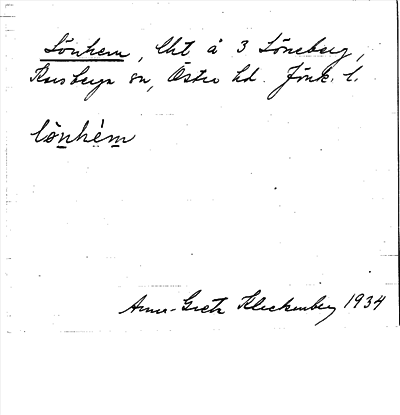 Lönhem, lht å 3 Löneberg,
Karsberga sn, Östra hd. Jönk. l.
lö̀nhém
Anna-Greta Kleckenberg 1934